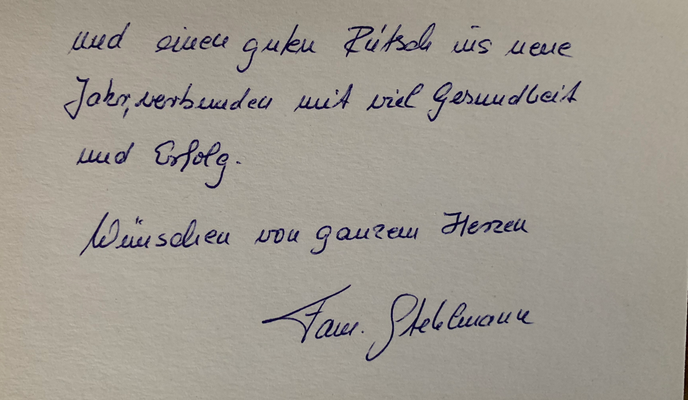 und einen guten Rutsch ins neue
Jahr, verbunden mit viel Gesundheit
und Erfolg.
Wünschen von ganzem Herzen
Fam. Stehlmann